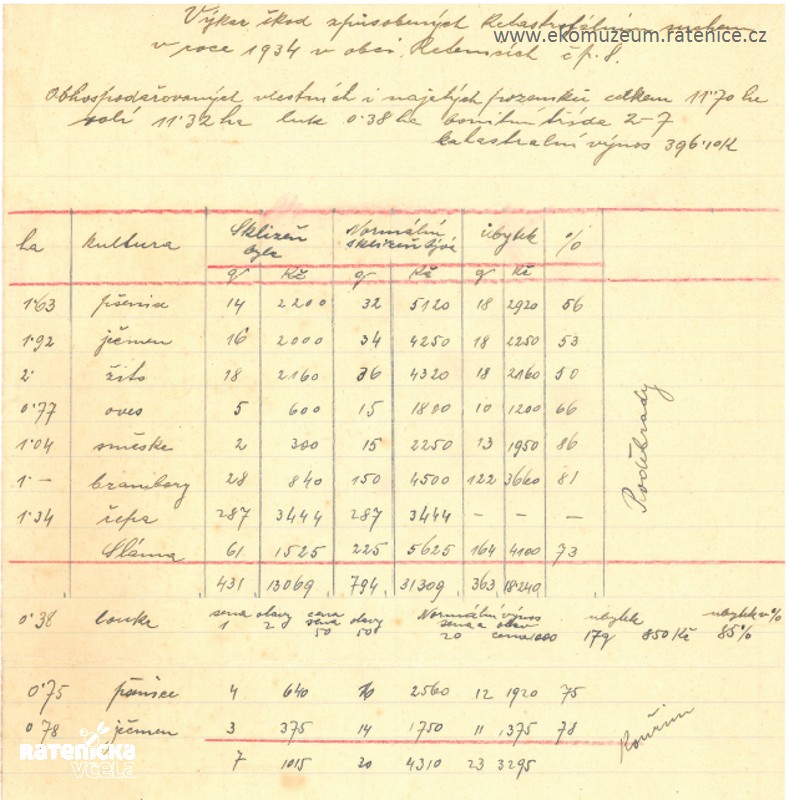 Výkaz škod způsobených katastrofálním suchem
www.ekomuzeum.ratenice.cz
v roce 1934 v obci Ratenicích čp. 8.
Obhospodařovaných vlastních i najatých pozemků celkem 11·70 ha
rolí 11·32 ha luk 0·38 ha bonitní třída 2-7
katastrální výnos 396·10 K
ha kultura Sklizeň byla Normální sklizeň bývá úbytek %
q Kč q Kč q Kč
1·63 pšenice 14 2200 32 5120 18 2920 56
1·92 ječmen 16 2000 34 4250 18 2250 53
2· žito 18 2160 36 4320 18 2160 50
0·77 oves 5 600 15 1800 10 1200 66
1·04 směska 2 300 15 2250 13 1950 86
1·— brambory 28 840 150 4500 122 3660 81
1·34 řepa 287 3444 287 3444 — — —
Sláma 61 1525 225 5625 164 4100 73
Poděbrady
431 13069 794 31309 363 18240
0·38 louka sena otavy cena sena otavy Normální výnos sena a otav úbytek úbytek v %
1 2 50 50 20 cena 1000 17q 850 Kč 85%
0·75 pšenice 4 640 16 2560 12 1920 75
0·78 ječmen 3 375 14 1750 11 1375 78
Kouřim
7 1015 20 4310 23 3295
RATENICKÁ
včela